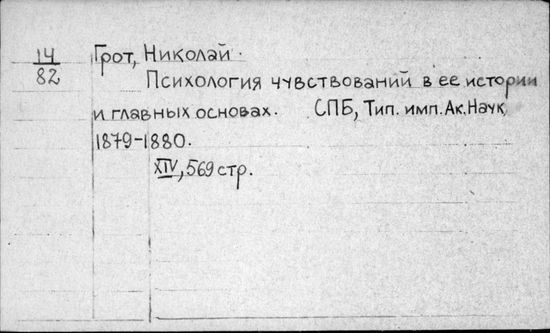 14
82
Грот, Николай.
Психология чувствований в ее истории
и главных основах. СПБ, Тип. имп. Ак. Наук,
1879-1880.
XIV, 569 стр.